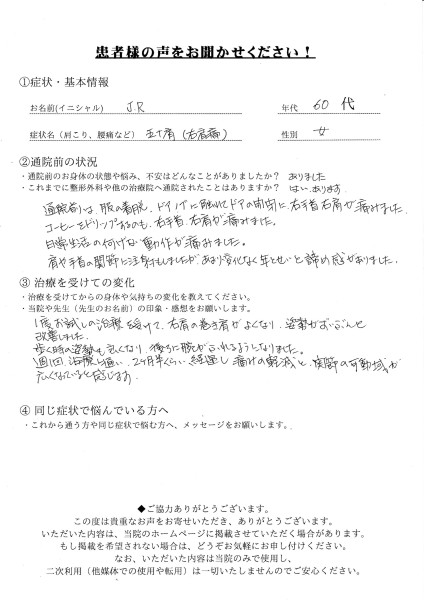 患者様の声をお聞かせください！
①症状・基本情報
お名前(イニシャル) J.R 年代 60 代
症状名（肩こり、腰痛など） 五十肩（右肩痛） 性別 女
②通院前の状況
・通院前のお身体の状態や悩み、不安はどんなことがありましたか？ ありました
・これまでに整形外科や他の治療院へ通院されたことはありますか？ はい、あります
通院前は、服の着脱、ドアノブに触れてドアの開閉に、右手首右肩が痛みました。
コーヒーをドリップするのも、右手首、右肩が痛みました。
日常生活の何げない動作が痛みました。
肩や手首の関節に注射もしましたがあまり変化なく年と 諦め感がありました。
③ 治療を受けての変化
・治療を受けてからの身体や気持ちの変化を教えてください。
・当院や先生（先生のお名前）の印象・感想をお願いします。
1度お試しの治療を受けて、右肩の巻き肩がよくなり、姿勢がずいぶんと
改善しました。
歩く時の姿勢も良くなり、後ろに腕がふれるようになりました。
週1回治療に通い、2ヶ月半くらい経過し 痛みの軽減と、関節の可動域が
広くなっていると感じます。
④ 同じ症状で悩んでいる方へ
・これから通う方や同じ症状で悩む方へ、メッセージをお願いします。
◆ご協力ありがとうございます。
この度は貴重なお声をお寄せいただき、ありがとうございます。
いただいた内容は、当院のホームページに掲載させていただく場合があります。
もし掲載を希望されない場合は、どうぞお気軽にお申し付けください。
なお、いただいた内容は当院のみで使用し、
二次利用（他媒体での使用や転用）は一切いたしませんのでご安心ください。